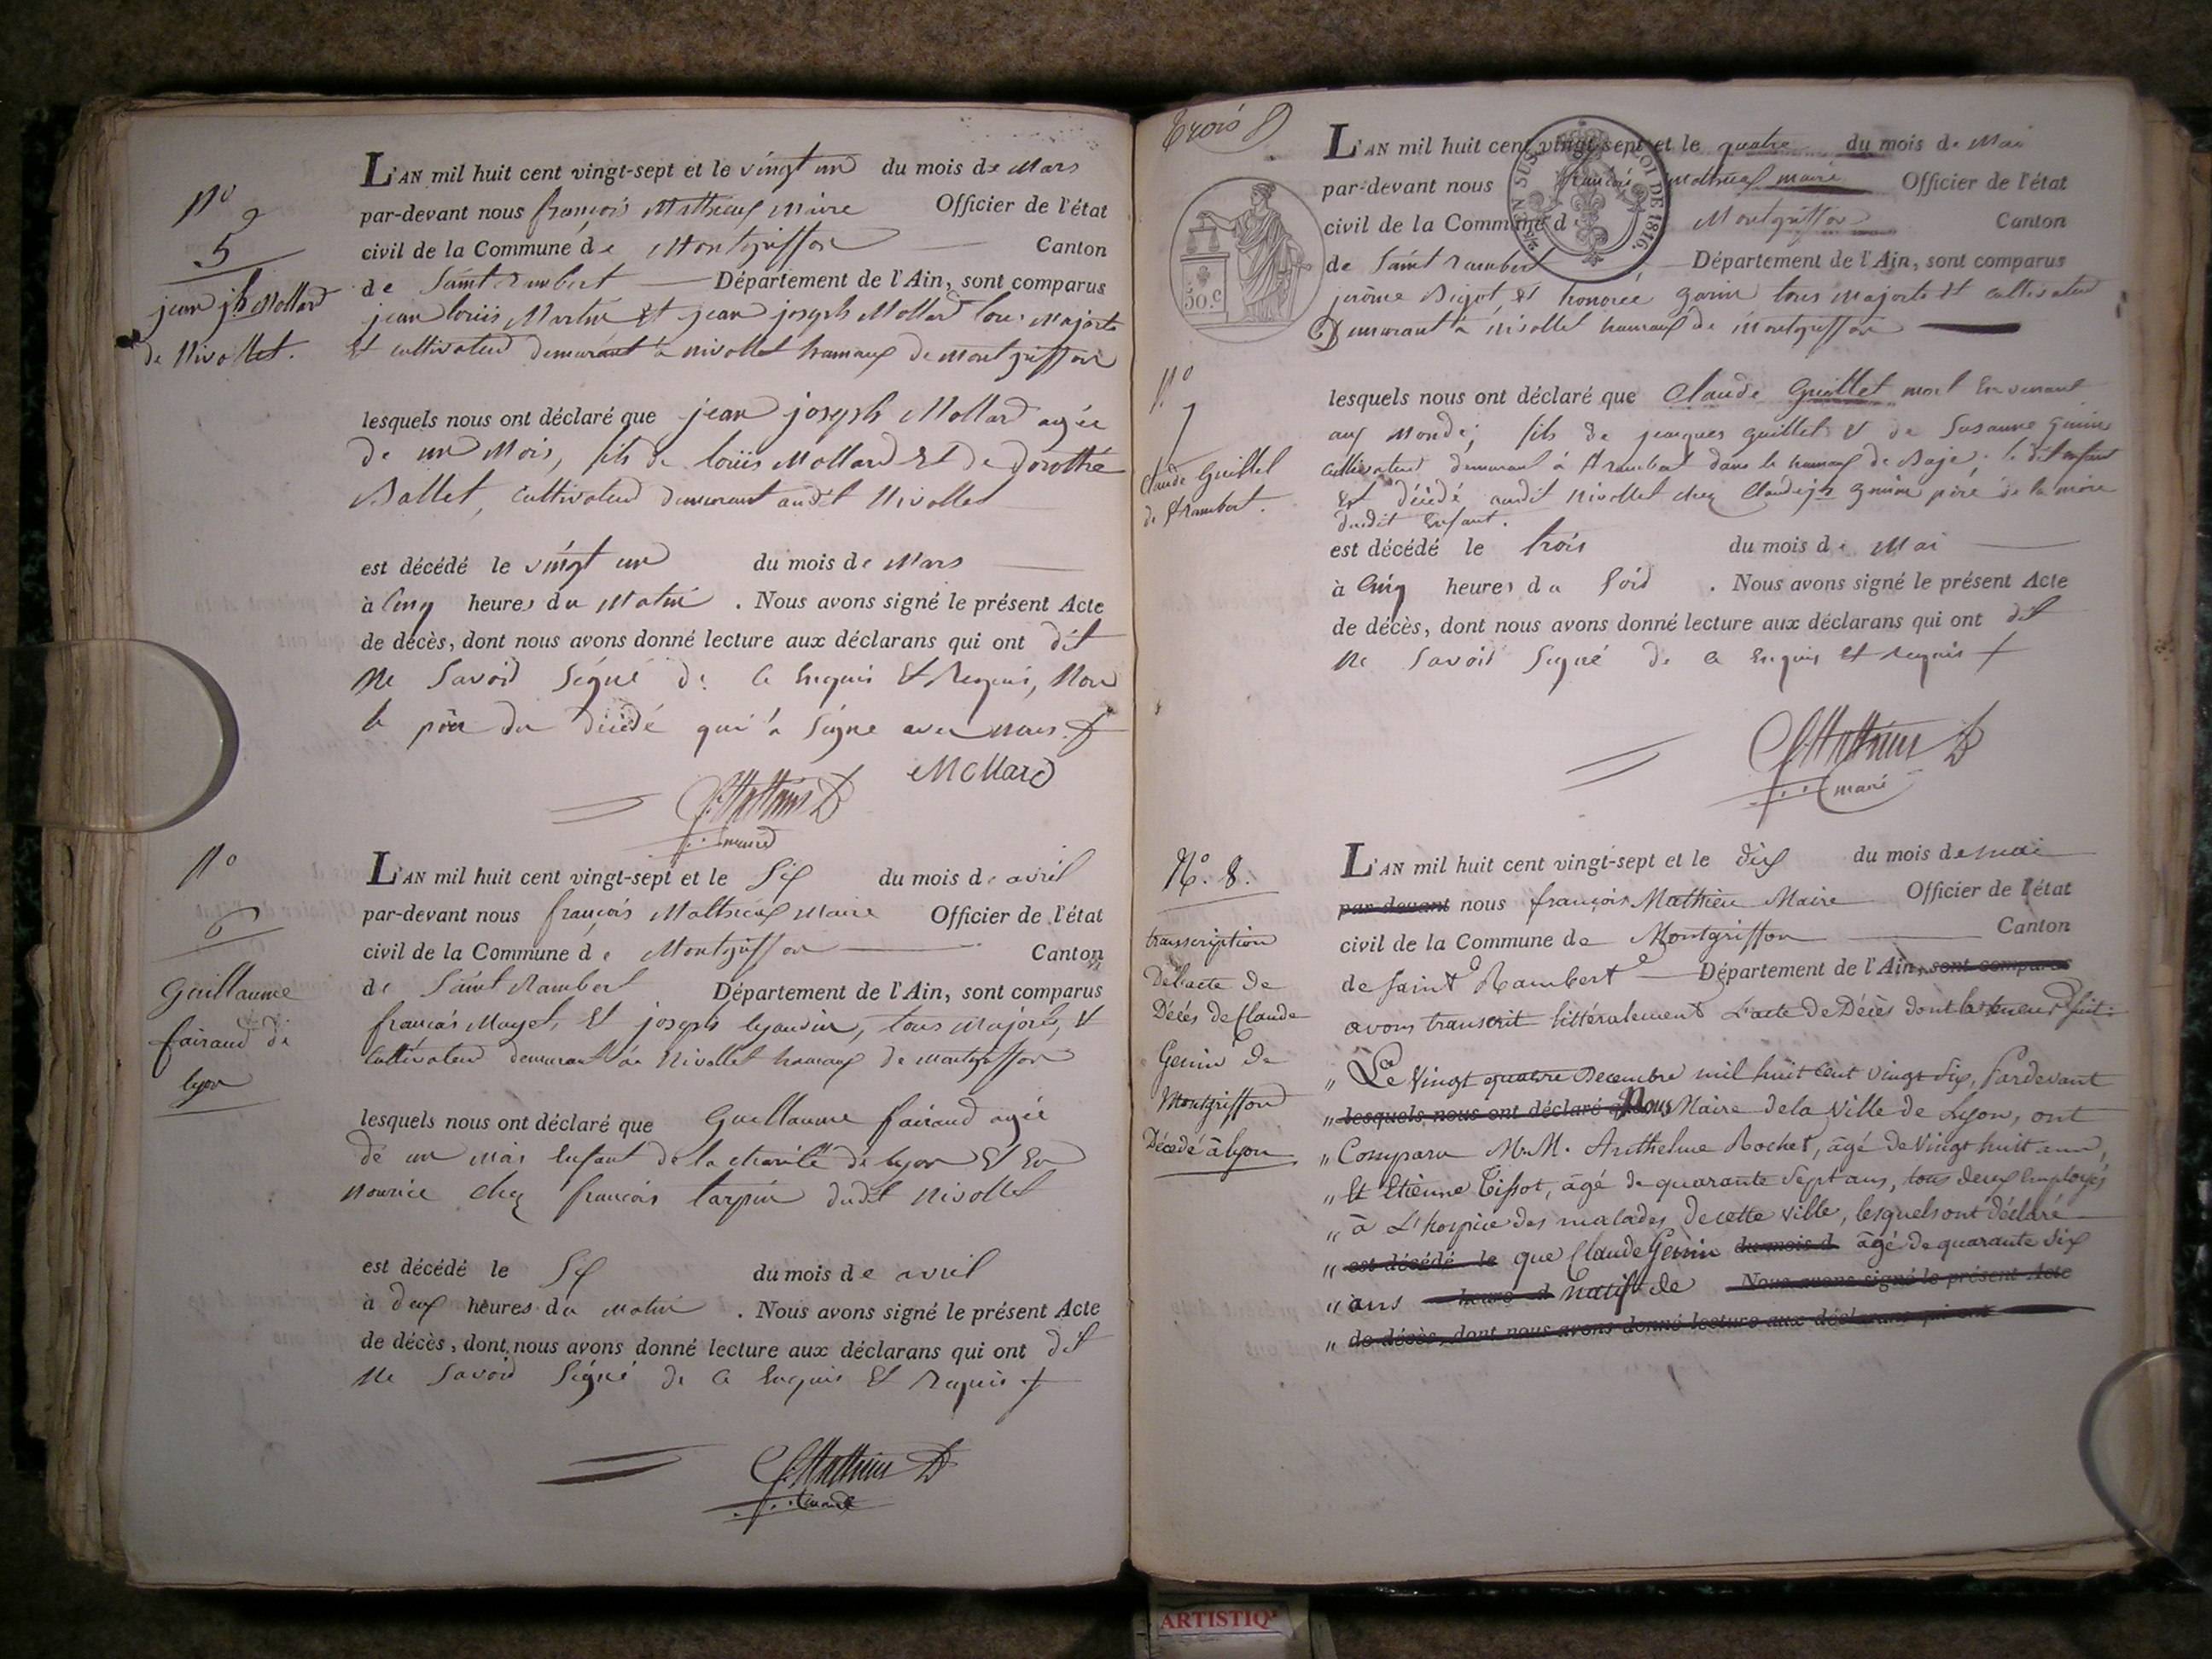 N.º
5
jean jh Mollard
de Nivollet.
L'AN mil huit cent vingt-sept et le vingt un du mois de Mars
par-devant nous françois Mathieux Maire Officier de l'état
civil de la Commune de Montgriffon Canton
de Saint Rambert Département de l'Ain, sont comparus
jean loüis Martin et jean joseph Mollard tous majorts
et cultivateur demurant a nivollet hameaux de montgriffon
lesquels nous ont déclaré que jean joseph Mollard agée
de un Mois, fils de loüis Mollard et de dorothé
Ballet, cultivateur demurant audit Nivollet
est décédé le vingt un du mois de Mars
à cinq heures du Matin . Nous avons signé le présent Acte
de décès, dont nous avons donné lecture aux déclarans qui ont dit
Ne Savoir Signé de ce Enquis et Requis, Non
le père du décédé qui a signe avec nous.
Mollard
f. Mathieux
maire
N.º
6
Guillaume
fairaud de
lyon
L'AN mil huit cent vingt-sept et le Six du mois de avril
par-devant nous françois Mathieux Maire Officier de l'état
civil de la Commune de Montgriffon Canton
de Saint Rambert Département de l'Ain, sont comparus
françois Mayet, et joseph lyaudin, tous majorts, et
Cultivateur demurant a Nivollet hameaux de montgriffon
lesquels nous ont déclaré que Guillaume fairaud agée
de un mois Enfant de la charité de lyon Et En
Nourice chez françois tarpin dudit Nivollet
est décédé le Six du mois de avril
à deux heures du matin . Nous avons signé le présent Acte
de décès, dont nous avons donné lecture aux déclarans qui ont dit
Ne Savoir Signé de ce Enquis Et Requis
f. Mathieux
maire
trois
LOI DE 1816.
50.c
L'AN mil huit cent vingt-sept et le quatre du mois de Mai
par-devant nous françois Mathieux maire Officier de l'état
civil de la Commune d Montgriffon Canton
de Saint rambert Département de l'Ain, sont comparus
jerôme Bigot, et honoré genin tous majorts et cultivateur
Demurant a nivollet hameaux de montgriffon
N.º
7
Claude Guillet
de St rambert.
lesquels nous ont déclaré que Claude Guillet mort En venant
aux Monde; fils de jacques guillet et de Susanne genin
cultivateur demurant à St rambert dans le hameaux de Baje; le dit enfant
Est décédé audit nivollet chez Claude jh genin père de la mère
dudit Enfant.
est décédé le trois du mois de Mai
à Cinq heures du Soir . Nous avons signé le présent Acte
de décès, dont nous avons donné lecture aux déclarans qui ont dit
Ne Savoir Signé de ce Enquis et requis
f. Mathieux
maire
N.º 8.
transcription
De l'acte de
Décés de Claude
Genin de
Montgriffon
Décédé à lyon
L'AN mil huit cent vingt-sept et le dix du mois de mai
par-devant nous françois Mathieu Maire Officier de l'état
civil de la Commune de Montgriffon Canton
de Saint Rambert Département de l'Ain, sont comparus
avons transcrit littéralement L'acte de Décès dont la teneur suit:
„ Le Vingt quatre Decembre mil huit cent vingt Six, Pardevant
„ lesquels nous ont déclaré que Nous Maire de la Ville de Lyon, ont
„ Comparu M.M. Anthelme Rochet, âgé de Vingt huit ans,
„ Et Etienne Tissot, âgé de quarante Sept ans, tous deux Employés
„ à L'hospice des malades de cette Ville, lesquels ont déclaré
„ est décédé le que Claude Genin du mois d âgé de quarante Six
„ ans heure d Natif de Nous avons signé le présent Acte
„ de décès, dont nous avons donné lecture aux déclarans qui ont
ARTISTIQ